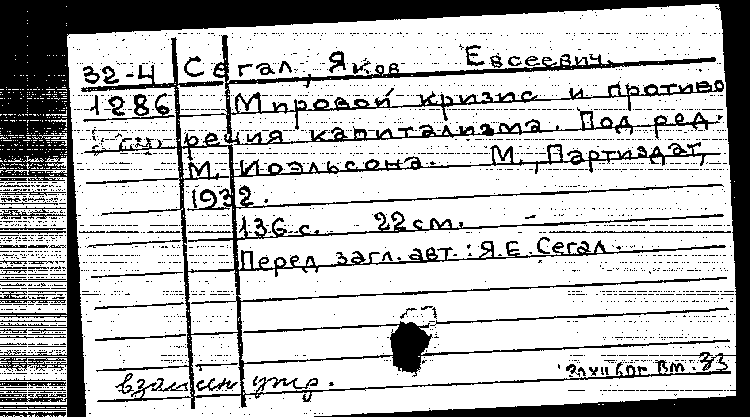 32-4 Сегал, Яков Евсеевич.
1286 Мировой кризис и противо
речия капитализма. Под ред.
М. Иоэльсона. М., Партиздат,
1932.
136 с. 22 см.
Перед загл. авт.: Я.Е. Сегал.
взамен утр.